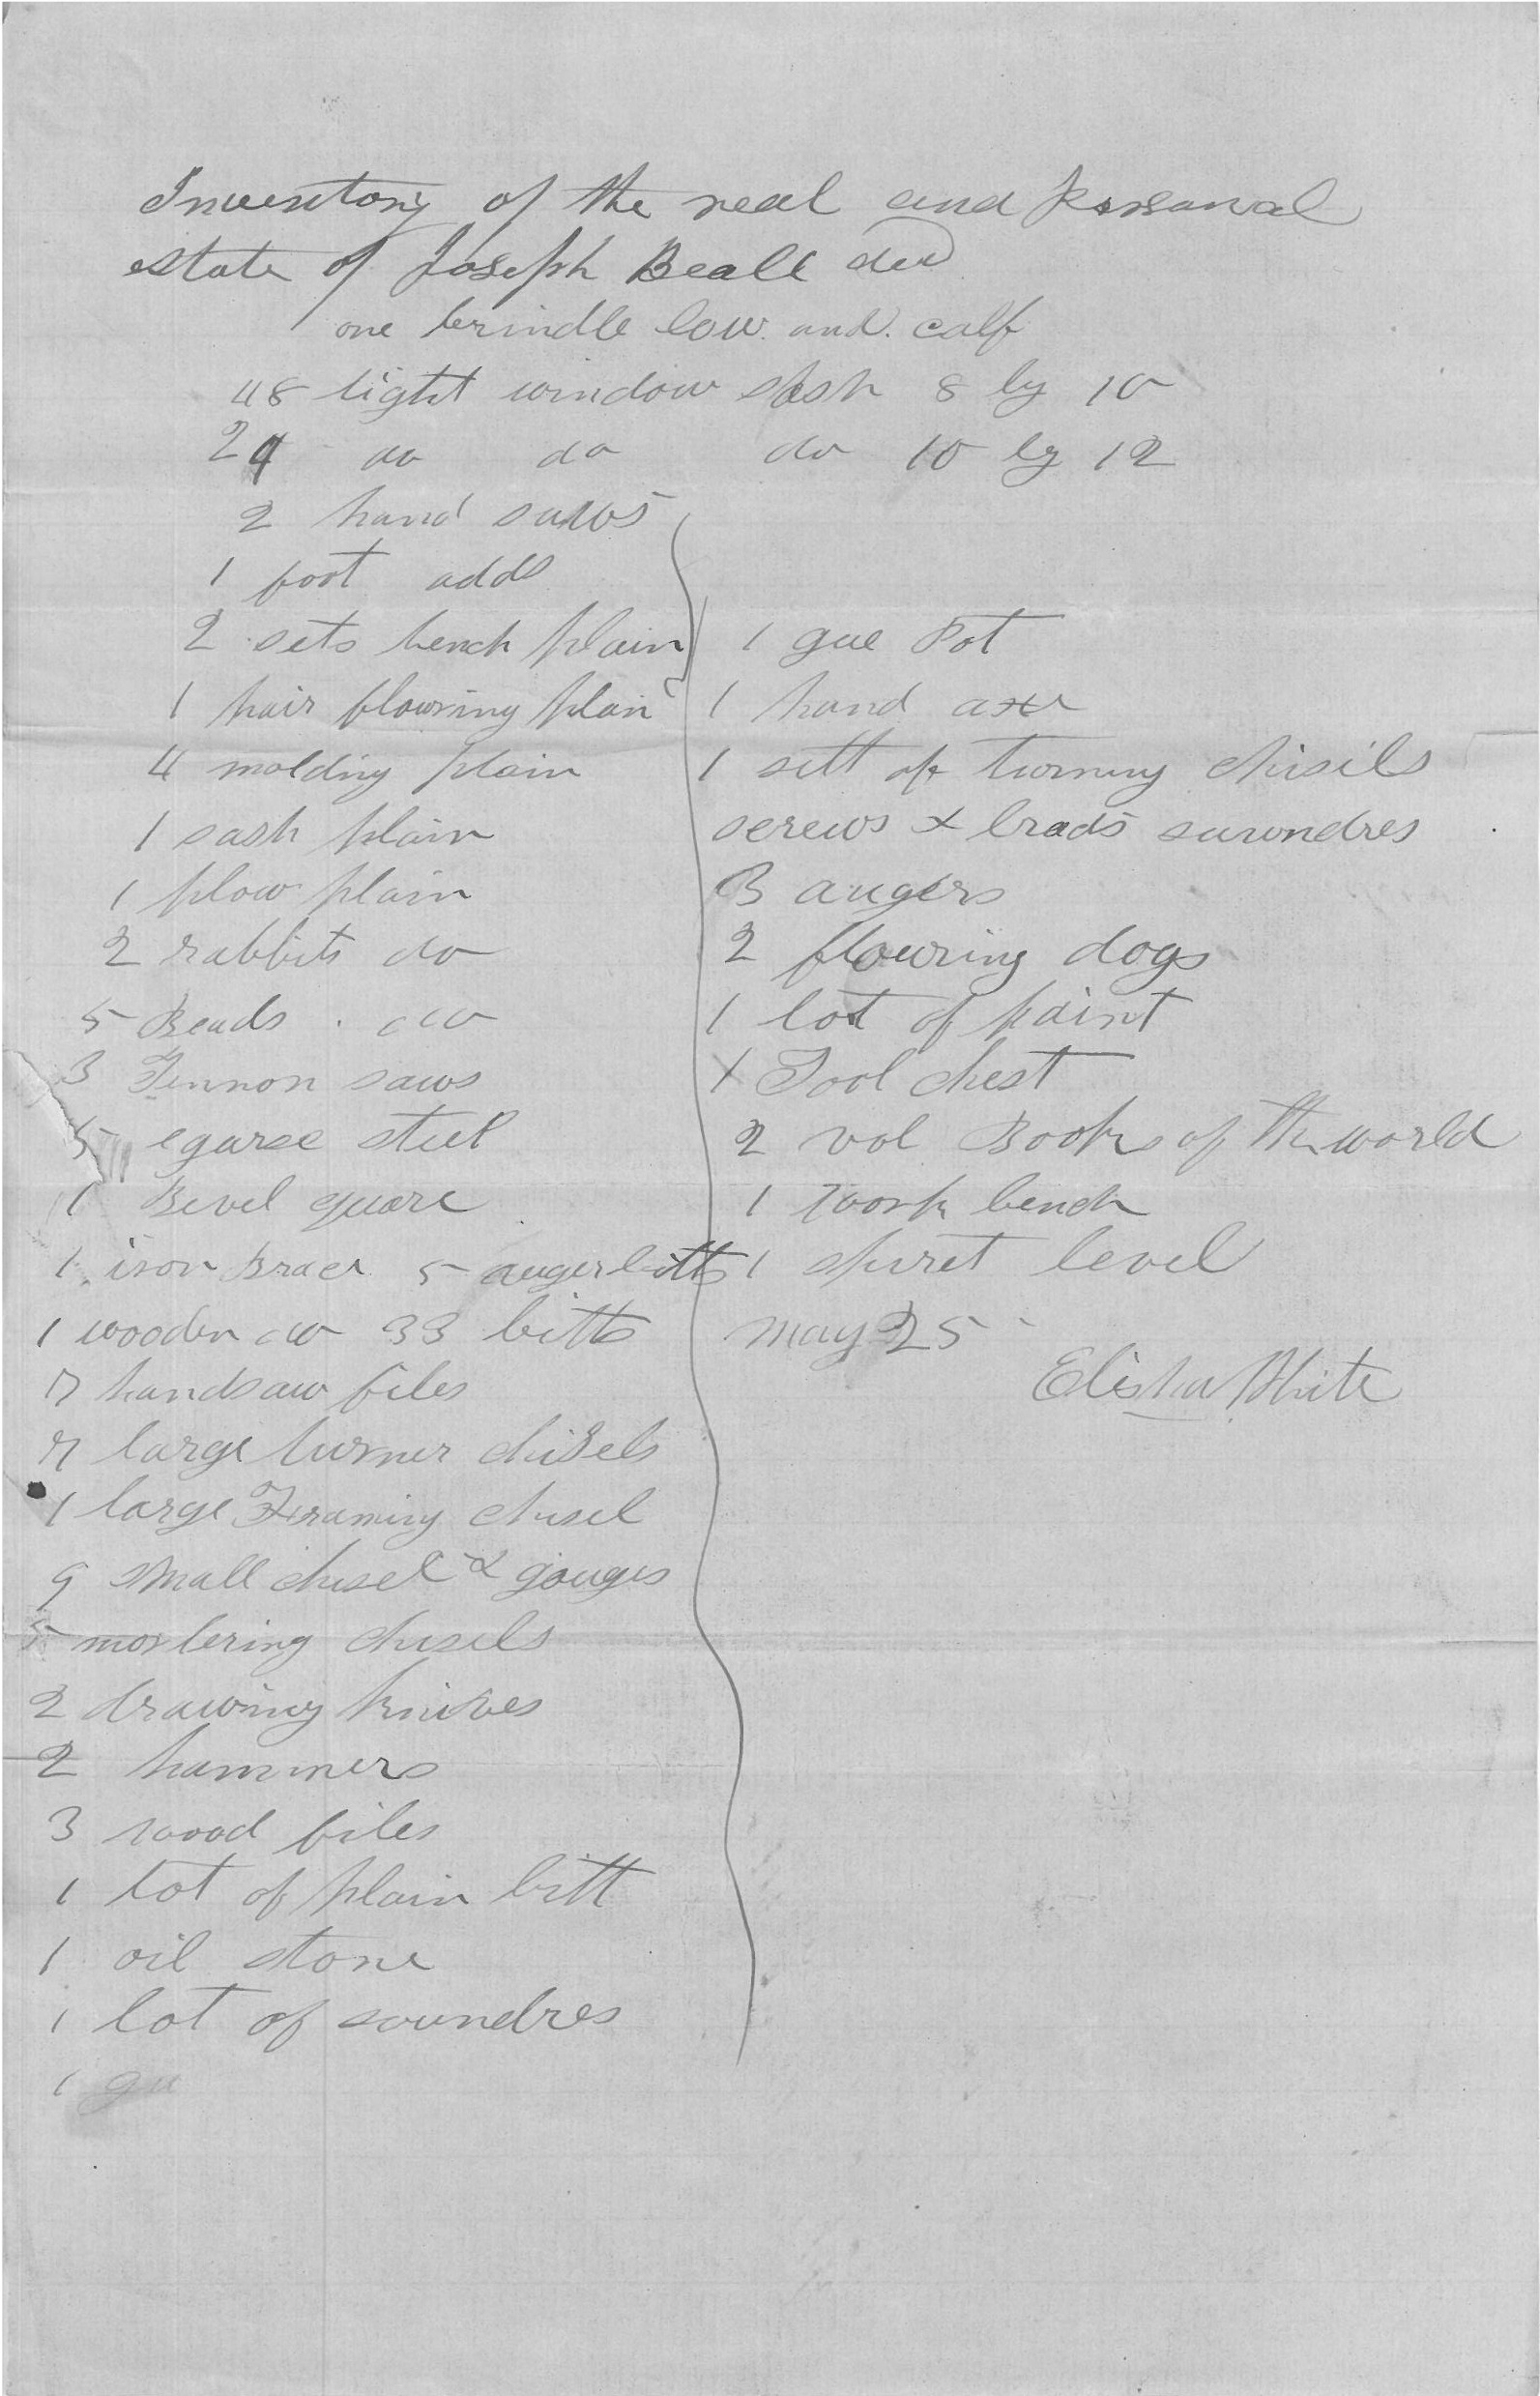 Inventory of the real and Personal
estate of Joseph Beall decd
one brindle cow and calf
48 light window sash 8 by 10
24 do do do 10 by 12
2 hand saws
1 foot adds
2 sets bench plain
1 pair flowring plan
4 molding plain
1 sash plain
1 plow plain
2 rabbits do
5 Beads do
3 Tennon saws
5 steel
1 Bevel square
1 iron Brace 5 auger bitts
1 wooden do 33 bitts
7 handsaw files
7 large turner chisels
1 large Framing chisel
9 small chisel & gouges
5 mortering chisels
2 drawing knives
2 hammers
3 wood files
1 lot of plain bitt
1 oil stone
1 lot of soundres
1 gu
1 gue Pot
1 hand axe
1 sett of turning chisils
screws & brads sawondres
3 augers
2 flowring dogs
1 lot of paint
1 Tool chest
2 vol Books of the world
1 work bench
1 spiret level
May 25
Elisha White